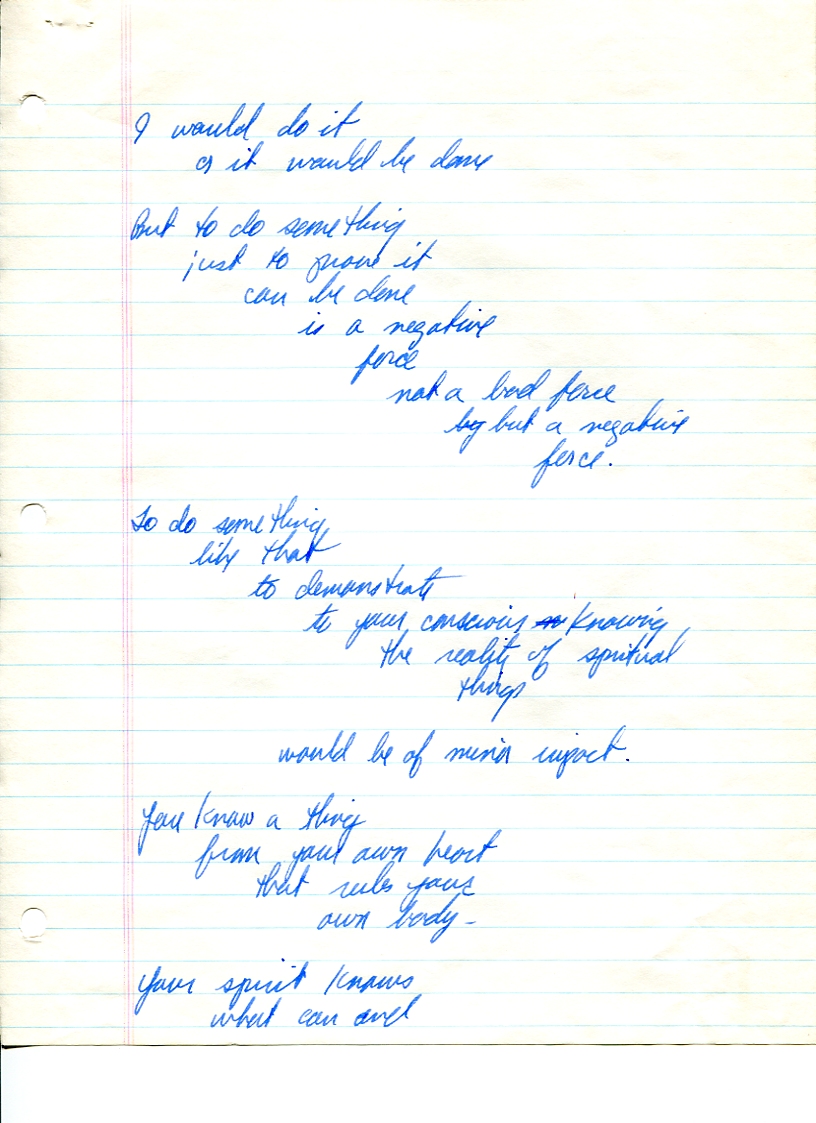 I would do it
or it would be done
But to do something
just to prove it
can be done
is a negative
force
not a bad force
by but a negative
force.
To do something
like that
to demonstrate
to your conscious knowing
the reality of spiritual
things
would be of minor impact.
You know a thing
from your own heart
that rules your
own body -
Your spirit knows
what can and